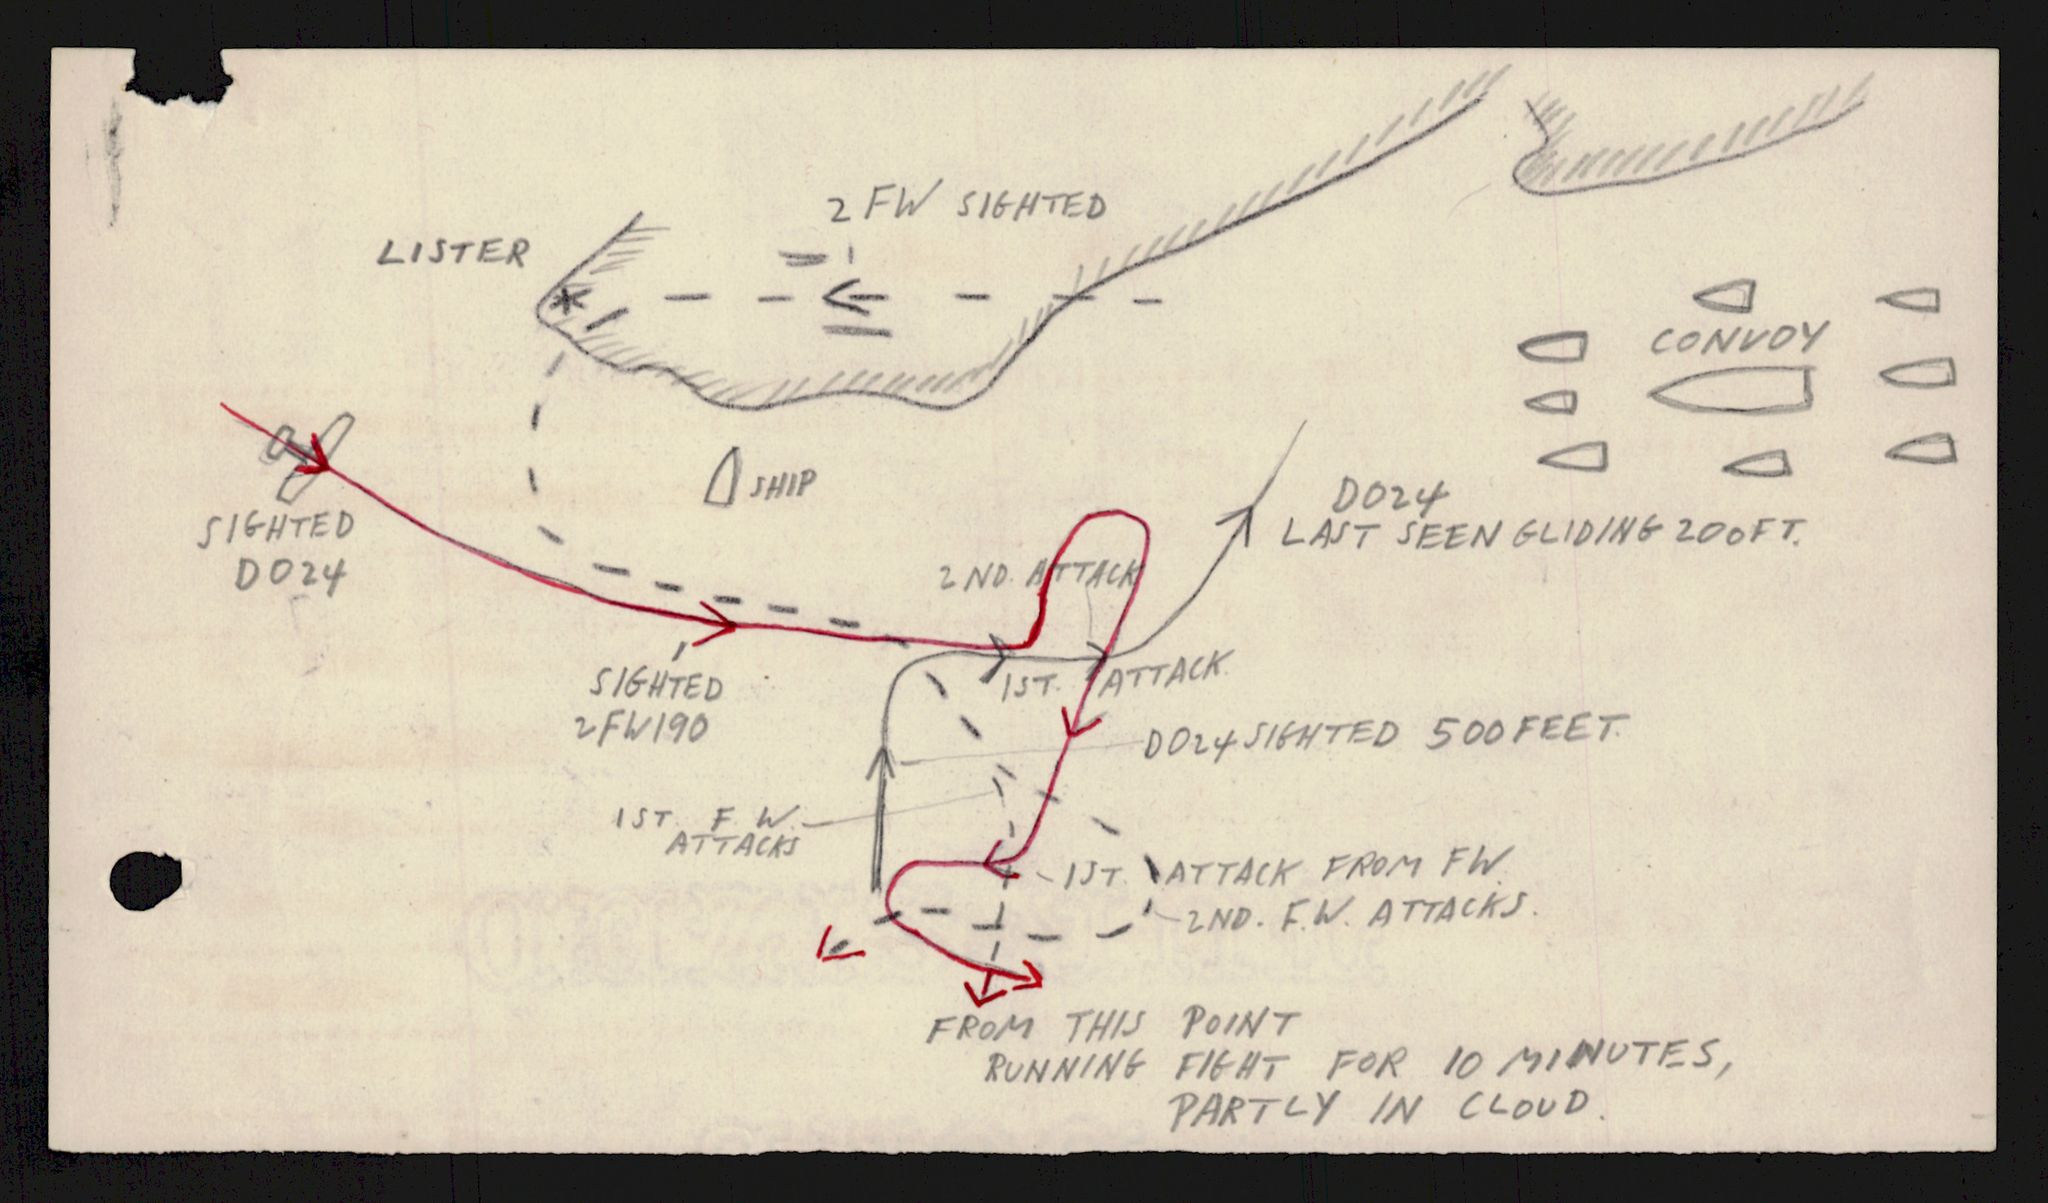 2 FW SIGHTED
LISTER
CONVOY
SHIP
SIGHTED
DO24
DO24
LAST SEEN GLIDING 200FT.
2ND. ATTACK
SIGHTED
2FW190
1ST. ATTACK.
DO24 SIGHTED 500 FEET.
1ST. F. W.
ATTACKS
1ST. ATTACK FROM FW.
2ND. F.W. ATTACKS.
FROM THIS POINT
RUNNING FIGHT FOR 10 MINUTES,
PARTLY IN CLOUD.